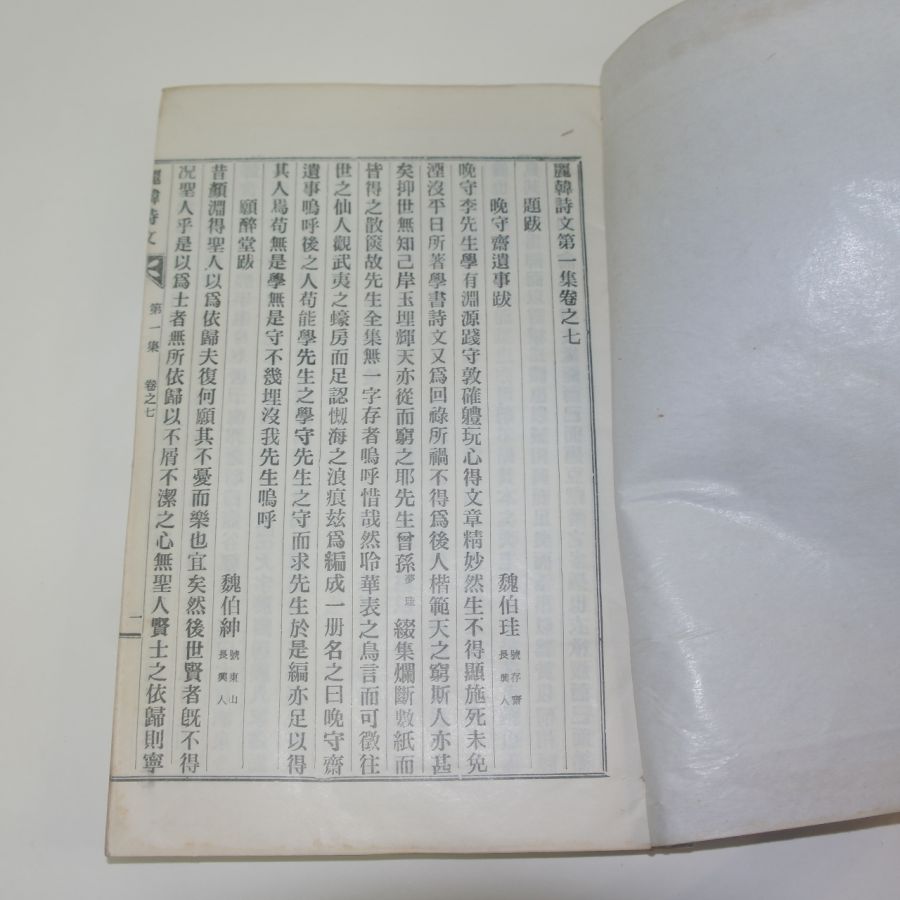 麗韓詩文第一集卷之七
題跋
晚守齋遺事跋
魏伯珪 號存齋 長興人
晚守李先生學有淵源踐守敦確軆玩心得文章精妙然生不得顯施死未免
湮沒平日所著學書詩文又爲回祿所禍不得爲後人楷範天之窮斯人亦甚
矣抑世無知己岸玉埋輝天亦從而窮之耶先生曾孫夢 綴集爛斷數紙而
皆得之散篋故先生全集無一字存者嗚呼惜哉然聆華表之鳥言而可徵往
世之仙人觀武夷之蠔房而足認海之浪痕玆爲編成一册名之曰晚守齋
遺事嗚呼後之人苟能學先生之學守先生之守而求先生於是編亦足以得
其人焉苟無是學無是守不幾埋沒我先生嗚呼
願醉堂跋
魏伯紳 號東山 長興人
昔顏淵得聖人以爲依歸夫復何願其不憂而樂也宜矣然後世賢者旣不得
况聖人乎是以爲士者無所依歸以不屑不潔之心無聖人賢士之依歸則寧
麗韓詩文 第一集 卷之七 一